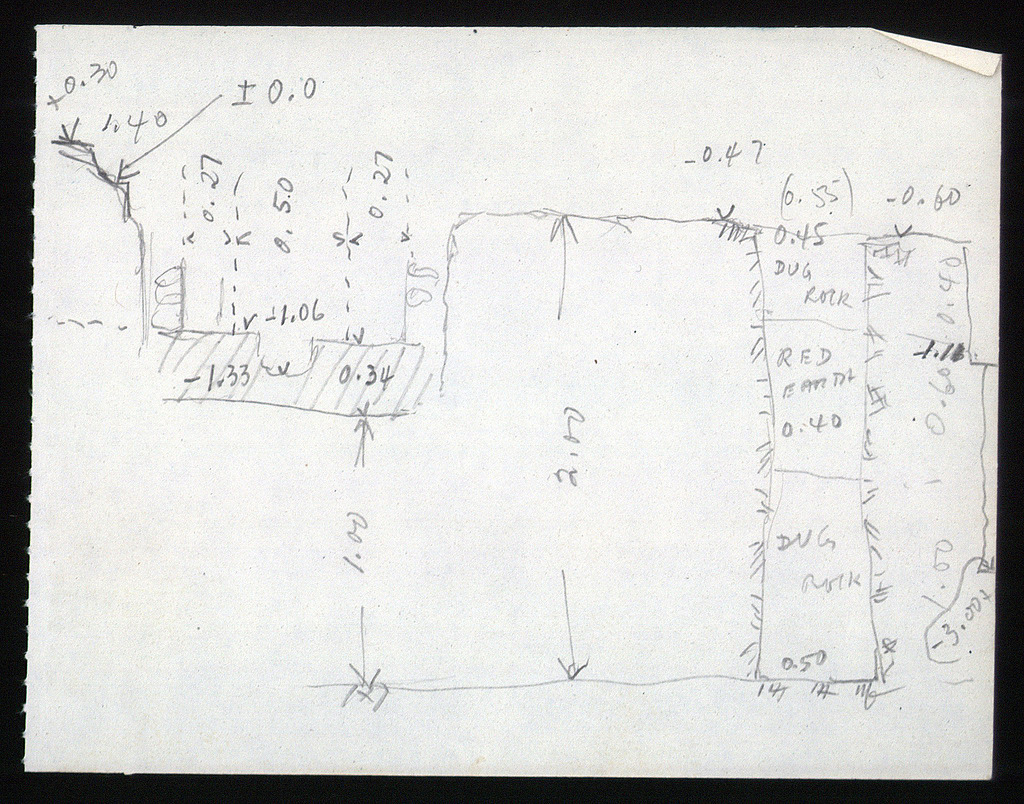 +0.30
1.40
± 0.0
0.27
0.50
0.27
-0.47
(0.55)
-0.60
0.45
DUG
ROCK
-1.06
-1.33
0.34
RED
EARTH
0.40
0.40
0.60
2.00
1.00
DUG
ROCK
1.00
-3.00
0.50